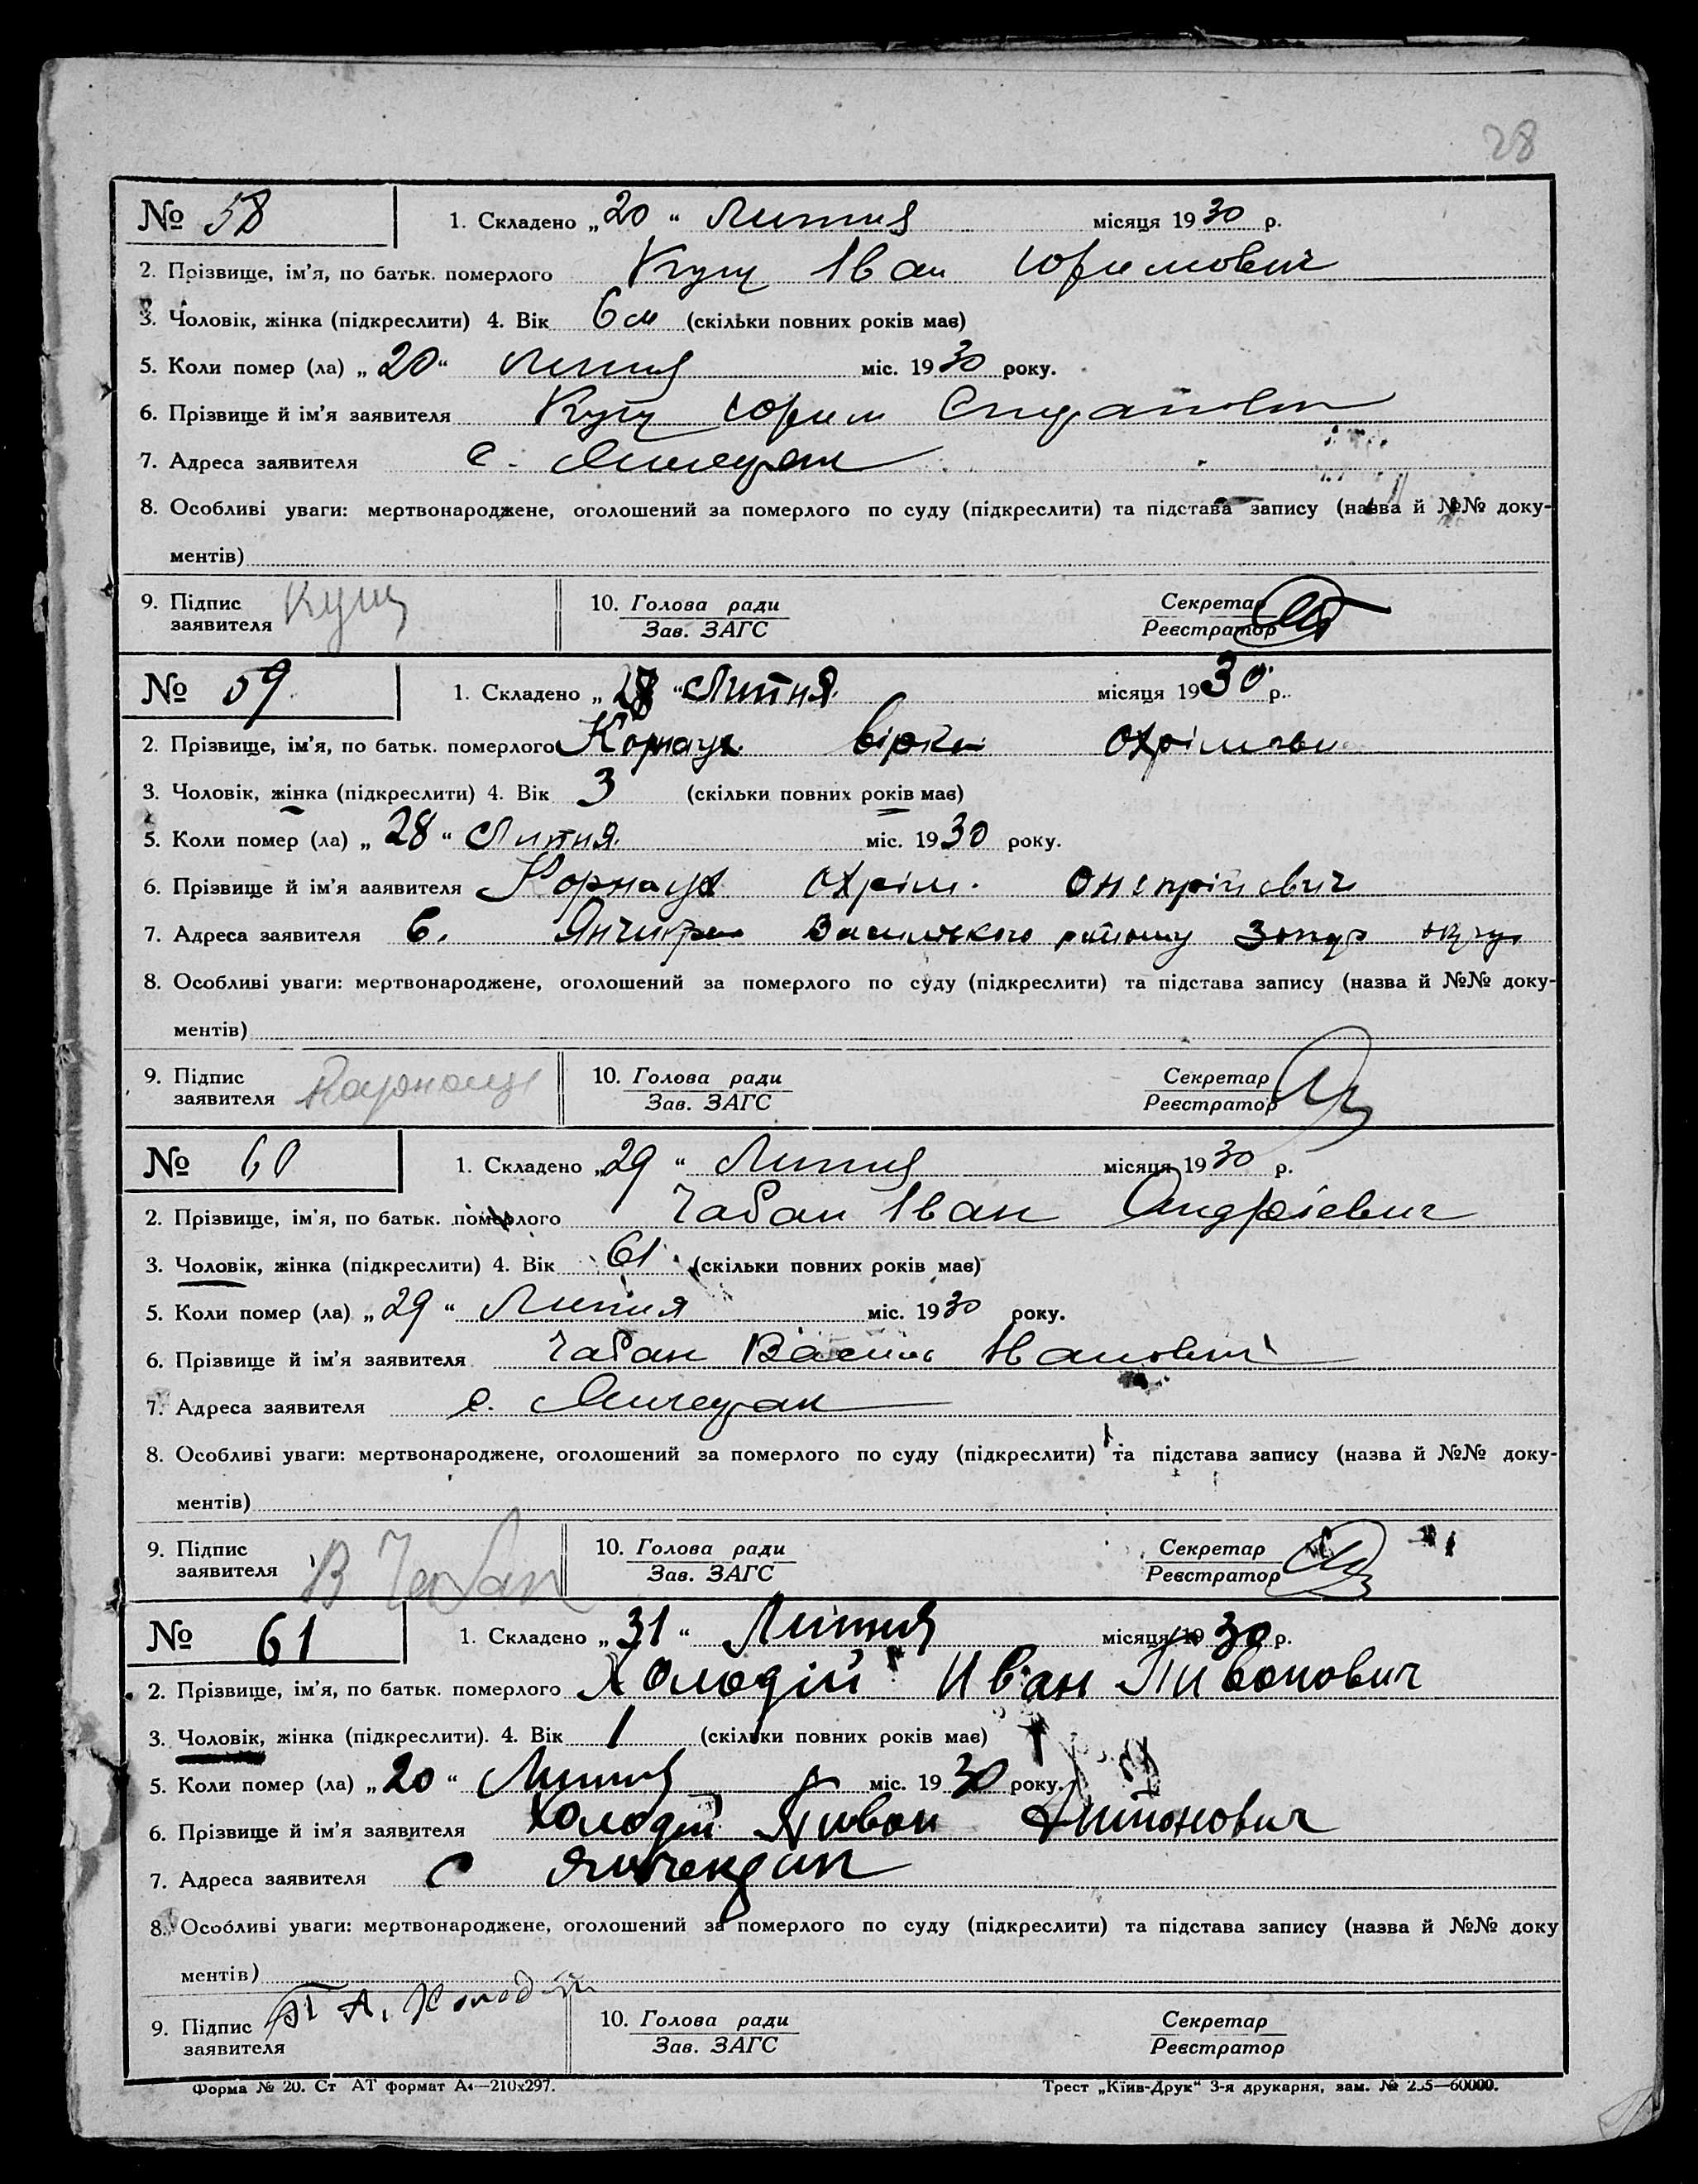 28
№ 58 1. Складено „20“ Липня місяця 1930 р.
2. Прізвище, ім'я, по батьк. померлого Кущ Іван Юримович
3. Чоловік, жінка (підкреслити) 4. Вік 6 м (скільки повних років має)
5. Коли помер (ла) „20“ Липня міс. 1930 року.
6. Прізвище й ім'я заявителя Кущ Юрим
7. Адреса заявителя с.
8. Особливі уваги: мертвонароджене, оголошений за померлого по суду (підкреслити) та підстава запису (назва й №№ доку-
ментів)
9. Підпис заявителя Кущ 10. Голова ради Секретар
Зав. ЗАГС Реєстратор
№ 59 1. Складено „28“ Липня місяця 1930 р.
2. Прізвище, ім'я, по батьк. померлого Корнаух Вірка
3. Чоловік, жінка (підкреслити) 4. Вік 3 (скільки повних років має)
5. Коли помер (ла) „28“ Липня міс. 1930 року.
6. Прізвище й ім'я заявителя Корнаух Охрім
7. Адреса заявителя с. Янчикрак Василівського району
8. Особливі уваги: мертвонароджене, оголошений за померлого по суду (підкреслити) та підстава запису (назва й №№ доку-
ментів)
9. Підпис заявителя 10. Голова ради Секретар
Зав. ЗАГС Реєстратор
№ 60 1. Складено „29“ Липня місяця 1930 р.
2. Прізвище, ім'я, по батьк. померлого Чабан Іван Андрієвич
3. Чоловік, жінка (підкреслити) 4. Вік 61 (скільки повних років має)
5. Коли помер (ла) „29“ Липня міс. 1930 року.
6. Прізвище й ім'я заявителя Чабан Василь Іванович
7. Адреса заявителя с.
8. Особливі уваги: мертвонароджене, оголошений за померлого по суду (підкреслити) та підстава запису (назва й №№ доку-
ментів)
9. Підпис заявителя В Чабан 10. Голова ради Секретар
Зав. ЗАГС Реєстратор
№ 61 1. Складено „31“ Липня місяця 1930 р.
2. Прізвище, ім'я, по батьк. померлого Холодій Иван Пивонович
3. Чоловік, жінка (підкреслити). 4. Вік 1 (скільки повних років має)
5. Коли помер (ла) „20“ Липня міс. 1930 року.
6. Прізвище й ім'я заявителя Холодій Пивон Антонович
7. Адреса заявителя с
8. Особливі уваги: мертвонароджене, оголошений за померлого по суду (підкреслити) та підстава запису (назва й №№ доку
ментів)
9. Підпис заявителя П А. Холодій 10. Голова ради Секретар
Зав. ЗАГС Реєстратор
Форма № 20. Ст АТ формат А4—210х297. Трест „Київ-Друк“ 3-я друкарня, зам. № 255—60000.